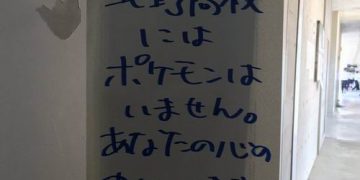 野高校
には
ポケモンは
いません。
あなたの心の